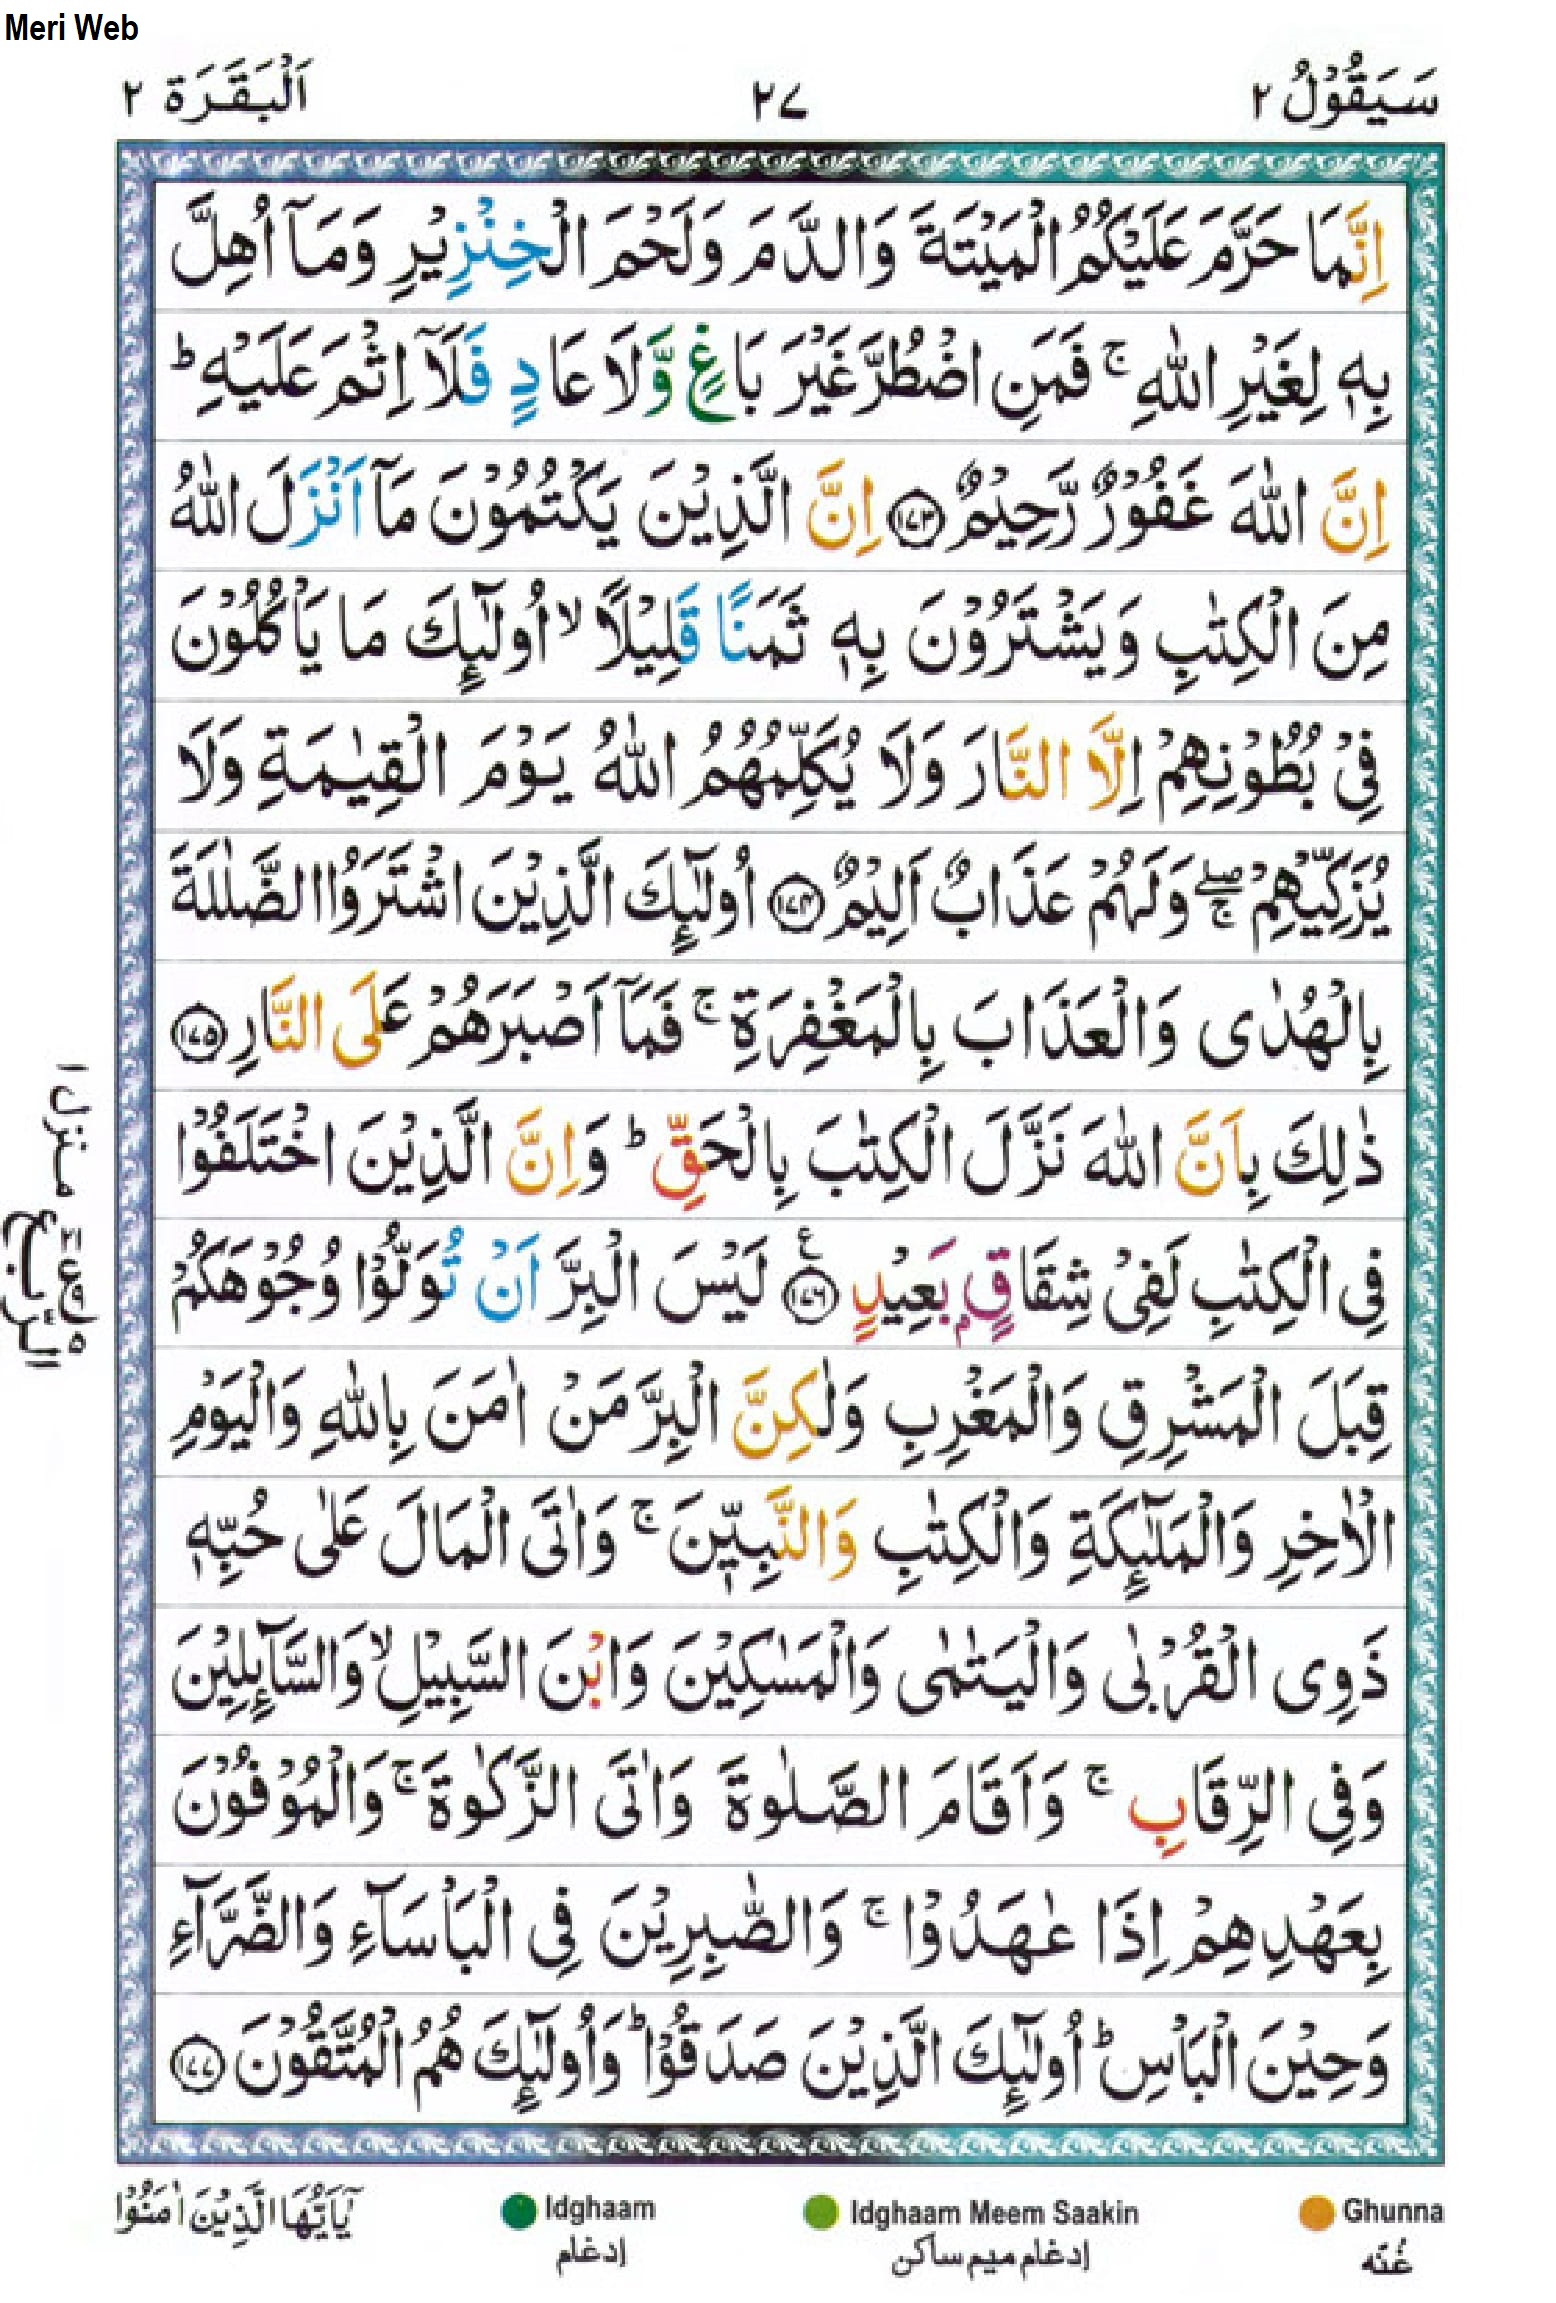 Meri Web
سَيَقُوْلُ ٢
٢٧
اَلْبَقَرَة ٢
اِنَّمَا حَرَّمَ عَلَيْكُمُ الْمَيْتَةَ وَالدَّمَ وَلَحْمَ الْخِنْزِيْرِ وَمَآ اُهِلَّ
بِهٖ لِغَيْرِ اللّٰهِ ۚ فَمَنِ اضْطُرَّ غَيْرَ بَاغٍ وَّلَا عَادٍ فَلَآ اِثْمَ عَلَيْهِ ؕ
اِنَّ اللّٰهَ غَفُوْرٌ رَّحِيْمٌ ١٧٣ اِنَّ الَّذِيْنَ يَكْتُمُوْنَ مَآ اَنْزَلَ اللّٰهُ
مِنَ الْكِتٰبِ وَيَشْتَرُوْنَ بِهٖ ثَمَنًا قَلِيْلًا ۙ اُولٰٓئِكَ مَا يَاْكُلُوْنَ
فِيْ بُطُوْنِهِمْ اِلَّا النَّارَ وَلَا يُكَلِّمُهُمُ اللّٰهُ يَوْمَ الْقِيٰمَةِ وَلَا
يُزَكِّيْهِمْ ۖۚ وَلَهُمْ عَذَابٌ اَلِيْمٌ ١٧٤ اُولٰٓئِكَ الَّذِيْنَ اشْتَرَوُا الضَّلٰلَةَ
بِالْهُدٰى وَالْعَذَابَ بِالْمَغْفِرَةِ ۚ فَمَآ اَصْبَرَهُمْ عَلَى النَّارِ ١٧٥
ذٰلِكَ بِاَنَّ اللّٰهَ نَزَّلَ الْكِتٰبَ بِالْحَقِّ ؕ وَاِنَّ الَّذِيْنَ اخْتَلَفُوْا
فِى الْكِتٰبِ لَفِيْ شِقَاقٍۭ بَعِيْدٍ ١٧٦ ع لَيْسَ الْبِرَّ اَنْ تُوَلُّوْا وُجُوْهَكُمْ
قِبَلَ الْمَشْرِقِ وَالْمَغْرِبِ وَلٰكِنَّ الْبِرَّ مَنْ اٰمَنَ بِاللّٰهِ وَالْيَوْمِ
الْاٰخِرِ وَالْمَلٰٓئِكَةِ وَالْكِتٰبِ وَالنَّبِيّٖنَ ۚ وَاٰتَى الْمَالَ عَلٰى حُبِّهٖ
ذَوِى الْقُرْبٰى وَالْيَتٰمٰى وَالْمَسٰكِيْنَ وَابْنَ السَّبِيْلِ ۙ وَالسَّآئِلِيْنَ
وَفِى الرِّقَابِ ۚ وَاَقَامَ الصَّلٰوةَ وَاٰتَى الزَّكٰوةَ ۚ وَالْمُوْفُوْنَ
بِعَهْدِهِمْ اِذَا عٰهَدُوْا ۚ وَالصّٰبِرِيْنَ فِى الْبَاْسَآءِ وَالضَّرَّآءِ
وَحِيْنَ الْبَاْسِ ؕ اُولٰٓئِكَ الَّذِيْنَ صَدَقُوْا ؕ وَاُولٰٓئِكَ هُمُ الْمُتَّقُوْنَ ١٧٧
منزل ١
الرّبع
يٰٓاَيُّهَا الَّذِيْنَ اٰمَنُوْا
Idghaam
إدغام
Idghaam Meem Saakin
إدغام ميم ساكن
Ghunna
غُنّه